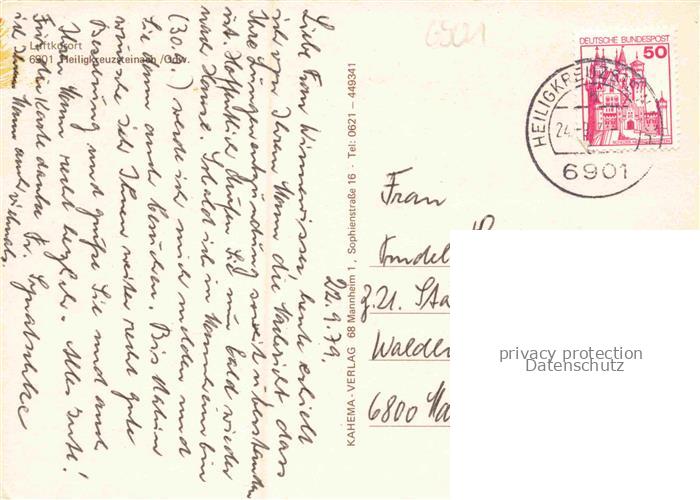 Luftkurort
6901 Heiligkreuzsteinach /Odw.
6901
DEUTSCHE BUNDESPOST
50
HEILIGKREUZSTEIN
24.-9.
6901
Liebe Frau heute erhielt
ich von Ihrem Mann die Nachricht dass
Ihre Lungenentzündung soweit überstanden
ist. Hoffentlich dürfen Sie nun bald wieder
nach Hause. Sobald ich in Mannheim bin
(30.9.) werde ich mich melden und
Sie dann auch besuchen. Bis dahin
wünsche ich Ihnen weiter recht gute
Besserung und grüße Sie und auch
Ihren Mann recht herzlich. Alles Gute!
Für die Karte danke Fr.
ich Ihrem Mann auch vielmals.
22.9.79.
KAHEMA-VERLAG 68 Mannheim 1, Sophienstraße 16 - Tel: 0621 – 449341
Frau
z.Zt.
6800 Ma
privacy protection
Datenschutz